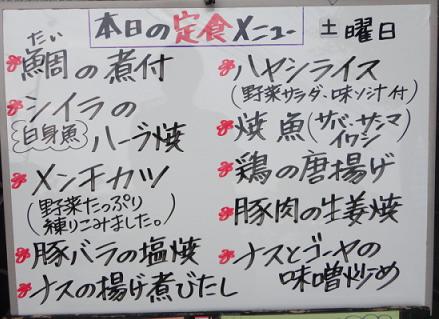 本日の定食メニュー 土曜日
たい
鯛の煮付
シイラの
白身魚 ハーブ焼
メンチカツ
(野菜たっぷり
練りこみました。)
豚バラの塩焼
ナスの揚げ煮びたし
ハヤシライス
(野菜サラダ、味ソ汁付)
焼魚(サバ・サンマ
イワシ)
鶏の唐揚げ
豚肉の生姜焼
ナスとゴーヤの
味噌炒め